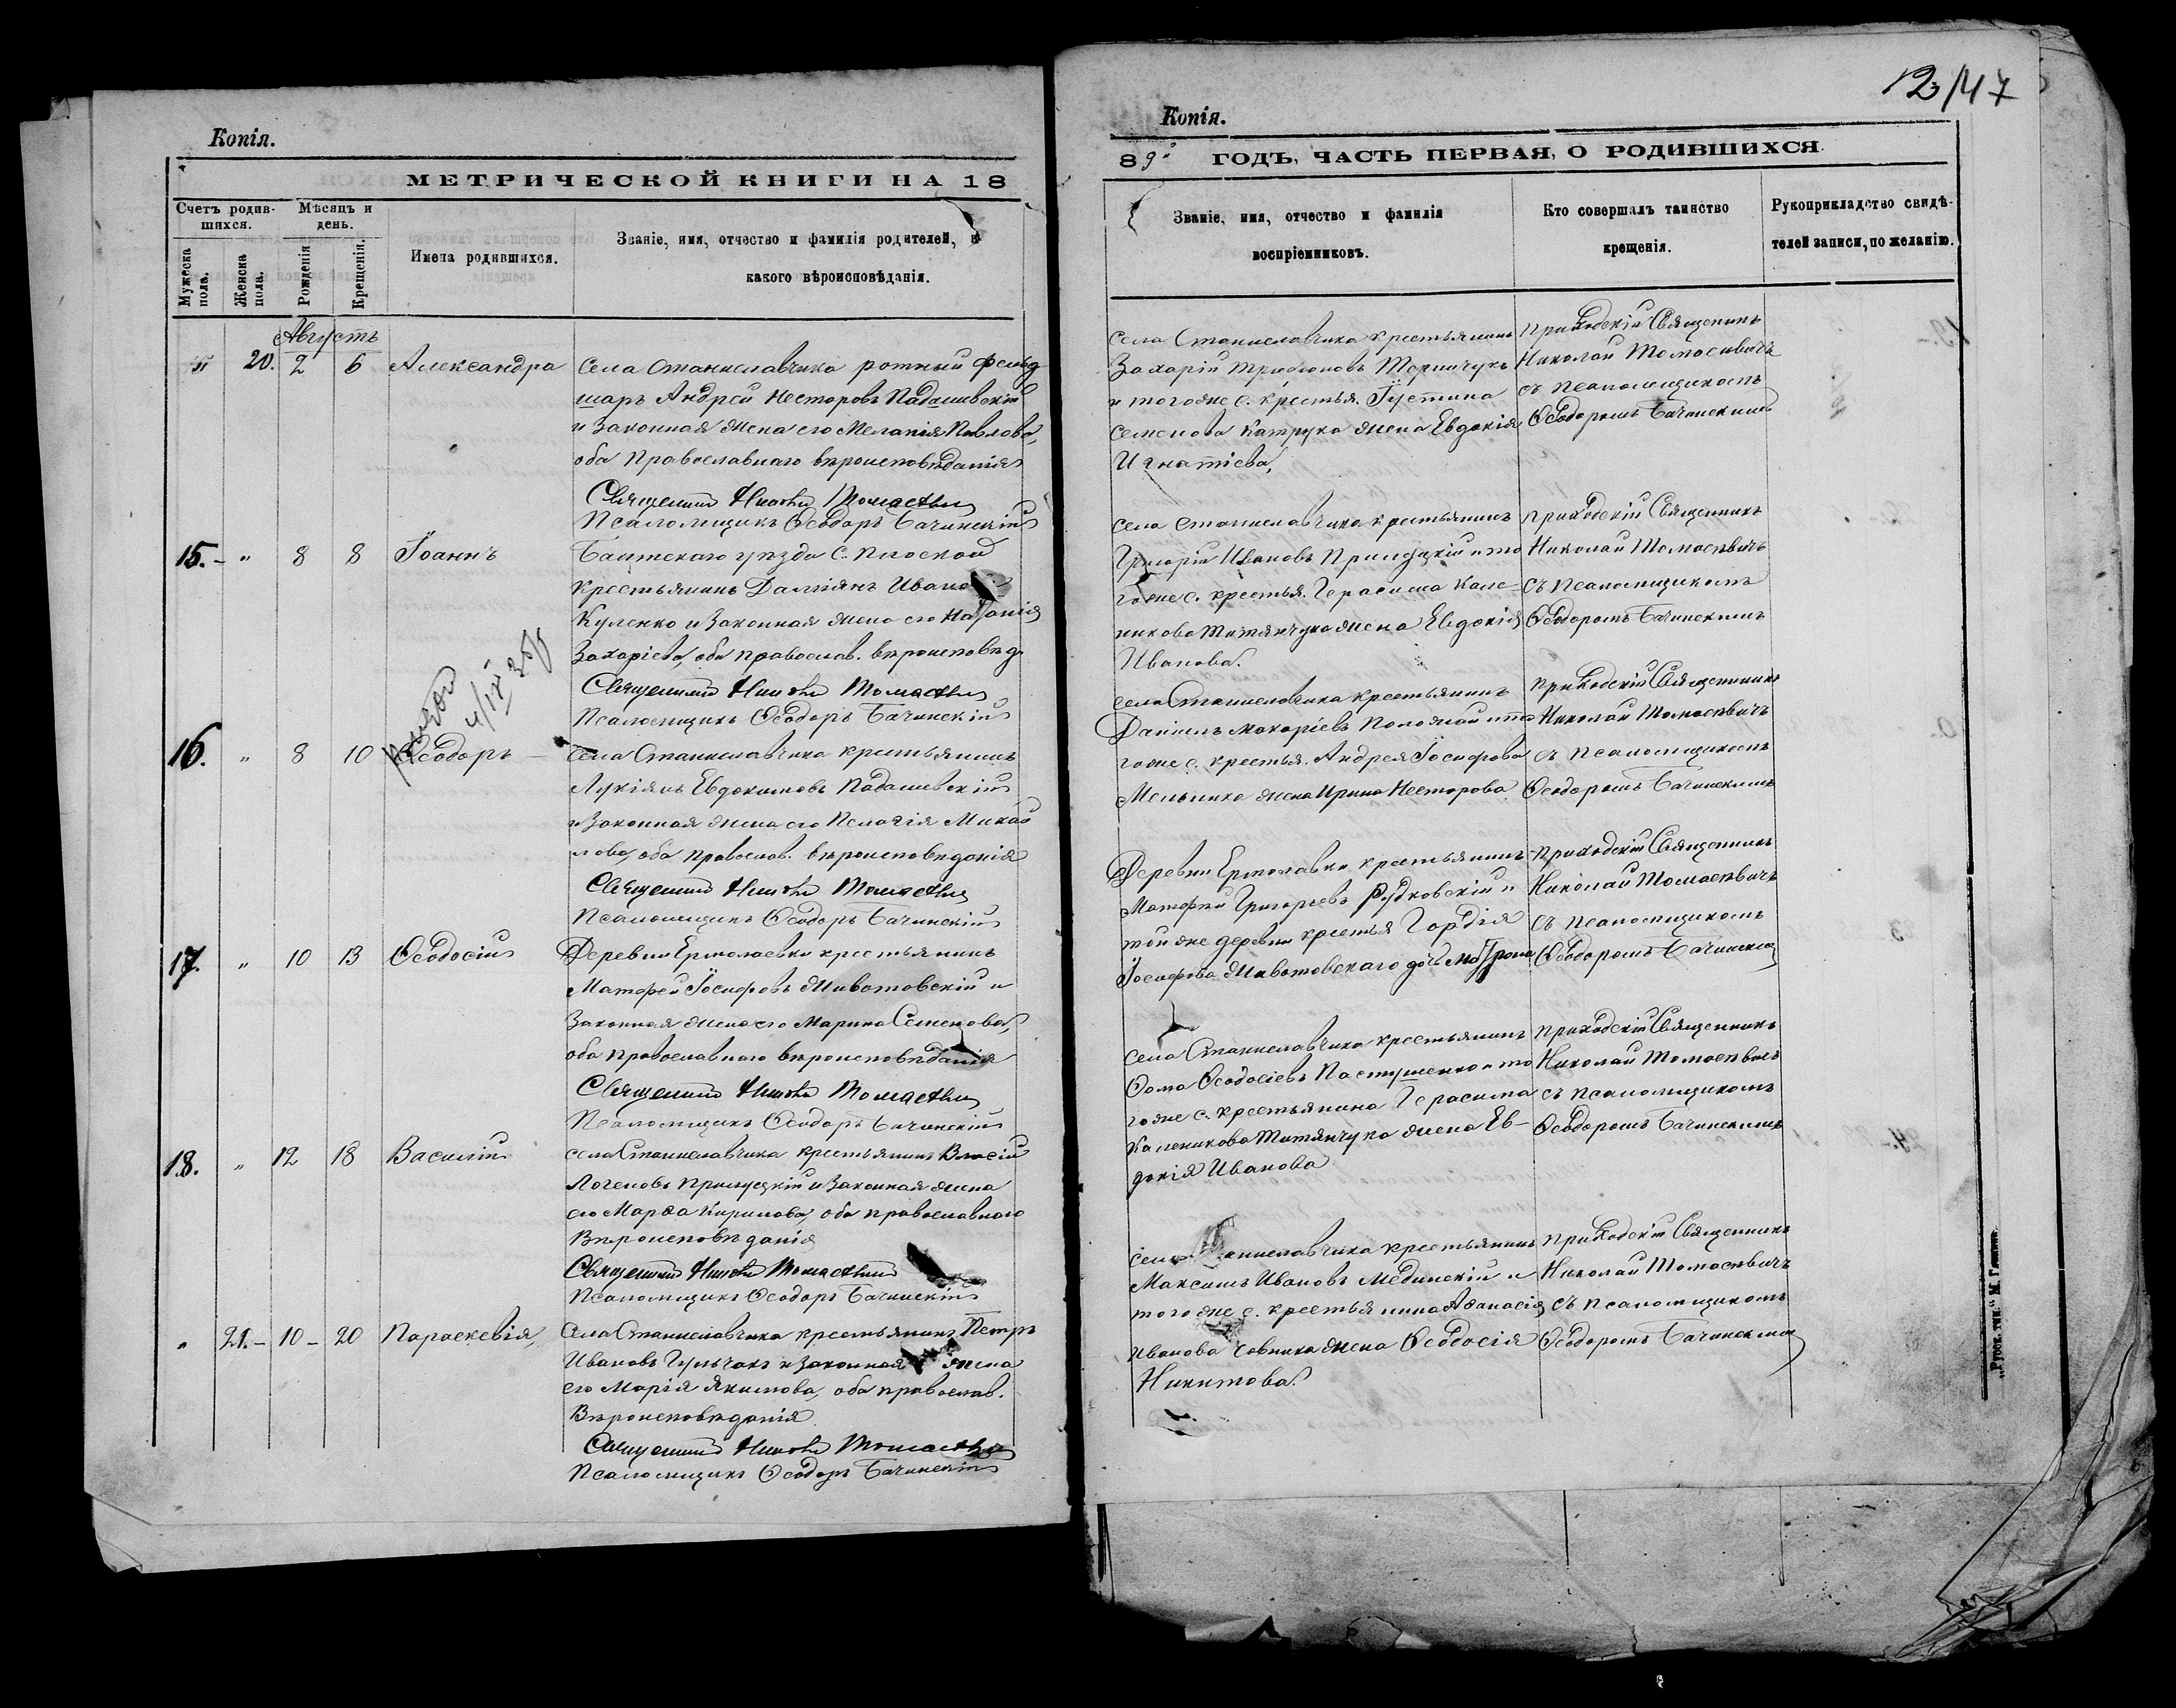 Копія.
МЕТРИЧЕСКОЙ КНИГИ НА 18
Счетъ родив-
шихся.
Мѣсяцъ и
день.
Мужеска
пола.
Женска
пола.
Рожденія
Крещенія.
Имена родившихся.
Званіе, имя, отчество и фамилія родителей, и
какого вѣроисповѣданія.
Августъ
" 20. 2 6 Александра Села Станиславчика ротный фельд
шаръ Андрей Несторовъ Падашевскій
и законная жена его Меланія Павлова,
оба православнаго вѣроисповѣданія
Священникъ Николай Томасевичъ
Псаломщикъ Ѳеодоръ Бачинскій
15. - " 8 8 Іоаннъ Балтскаго уѣзда с. Плоской
крестьянинъ Даміянъ Ивано
Куленко и законная жена его Наталія
Захаріева, оба православ. вѣроисповѣд.
Священникъ Николай Томасевичъ
Псаломщикъ Ѳеодоръ Бачинскій
16. " 8 10 Ѳеодоръ - Села Станиславчика крестьянинъ
Лукіянъ Евдокимовъ Падашевскій
и законная жена его Пелагія Михай
лова, оба православ. вѣроисповѣданія
Священникъ Николай Томасевичъ
Псаломщикъ Ѳеодоръ Бачинскій
17. " 10 13 Ѳеодосій Деревни Ермолаевки крестьянинъ
Матфей Іосифовъ Животовскій и
законная жена его Марина Семенова,
оба православнаго вѣроисповѣданія
Священникъ Николай Томасевичъ
Псаломщикъ Ѳеодоръ Бачинскій
18. " 12 18 Василій села Станиславчика крестьянинъ Власій
Логеновъ Прилуцкій и законная жена
его Марѳа Кирилова, оба православнаго
вѣроисповѣданія
Священникъ Николай Томасевичъ
Псаломщикъ Ѳеодоръ Бачинскій
" 21. - 10 - 20 Параскевія, Села Станиславчика крестьянинъ Петръ
Ивановъ Гульчакъ и законная жена
его Марія Якимова, оба православ.
вѣроисповѣданія
Священникъ Николай Томасевичъ
Псаломщикъ Ѳеодоръ Бачинскій
12/47
Копія.
89 ГОДЪ, ЧАСТЬ ПЕРВАЯ, О РОДИВШИХСЯ
Званіе, имя, отчество и фамилія
воспріемниковъ.
Кто совершалъ таинство
крещенія.
Рукоприкладство свидѣ-
телей записи, по желанію.
Села Станиславчика крестьянинъ
Захарій Трифоновъ
и тогоже с. крестья. Іустина
Семенова Катрука жена Евдокія
Игнатіева,
Приходскій Священникъ
Николай Томасевичъ
съ псаломщикомъ
Ѳеодоромъ Бачинскимъ
села Станиславчика крестьянинъ
Григорій Ивановъ Прилуцкій и то
гоже с. крестья. Герасима Кале-
никова Титянчука жена Евдокія
Иванова.
Приходскій Священникъ
Николай Томасевичъ
съ псаломщикомъ
Ѳеодоромъ Бачинскимъ
села Станиславчика крестьянинъ
Даніилъ Макаріевъ и то
гоже с. крестья. Андрея Іосифова
Мельника жена Ирина Несторова
Приходскій Священникъ
Николай Томасевичъ
съ псаломщикомъ
Ѳеодоромъ Бачинскимъ
Деревни Ермолавки крестьянинъ
Матфей Григорьевъ Рудковскій и
той же деревни крестья Гордія
Іосифова Животовскаго дочь Матрона
Приходскій Священникъ
Николай Томасевичъ
съ псаломщикомъ
Ѳеодоромъ Бачинским
села Станиславчика крестьянинъ
Ѳома Ѳеодосіевъ Пастушенко и то
гоже с. крестьянина Герасима
Каленикова Титянчука жена Ев-
докія Иванова
Приходскій Священникъ
Николай Томасевичъ
съ псаломщикомъ
Ѳеодоромъ Бачинскимъ
Села Станиславчика крестьянинъ
Максимъ Ивановъ Мединскій и
того же с. крестьянина Аѳанасія
Иванова жена Ѳеодосія
Никитова.
Приходскій Священникъ
Николай Томасевичъ
съ псаломщикомъ
Ѳеодоромъ Бачинским